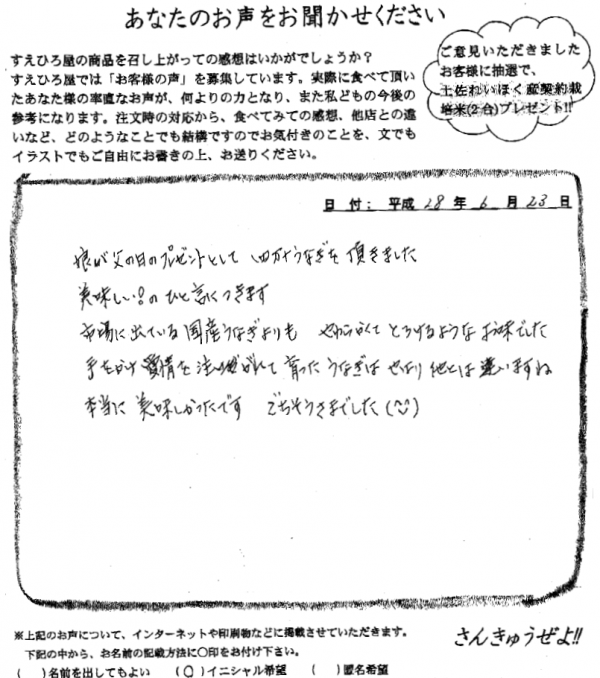 あなたのお声をお聞かせください
すえひろ屋の商品を召し上がっての感想はいかがでしょうか？
すえひろ屋では「お客様の声」を募集しています。実際に食べて頂い
たあなた様の率直なお声が、何よりの力となり、また私どもの今後の
参考になります。注文時の対応から、食べてみての感想、他店との違
いなど、どのようなことでも結構ですのでお気付きのことを、文でも
イラストでもご自由にお書きの上、お送りください。
ご意見いただきました
お客様に抽選で、
土佐れいほく産契約栽
培米(2合)プレゼント!!
日 付： 平成 28 年 6 月 23 日
娘が父の日のプレゼントとして 四万十うなぎを頂きました
美味しい!のひと言につきます
市場に出ている国産うなぎよりも やわらかくてとろけるようなお味でした
手をかけ愛情を注がれて育ったうなぎは やはり他とは違いますね
本当に美味しかったです ごちそうさまでした(^^)
※上記のお声について、インターネットや印刷物などに掲載させていただきます。
下記の中から、お名前の記載方法に〇印をお付け下さい。
( )名前を出してもよい (〇)イニシャル希望 ( )匿名希望
さんきゅうぜよ!!